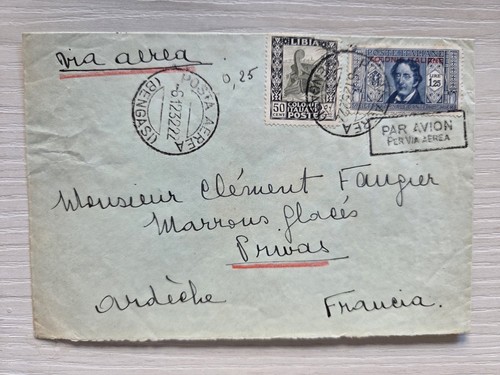 via aerea
0,25
POSTA AEREA
(BENGASI)
LIBIA
50
CENT
POSTE
COLONIE ITALIANE
1,25
PAR AVION
PER VIA AEREA
Monsieur Clément Faugier
Marrons glacés
Privas
Ardèche
Francia.